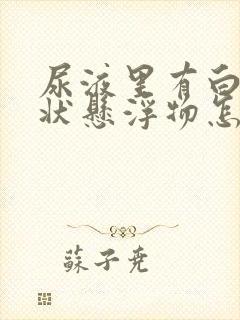 尿液里有白
状悬浮物怎
蘇子尧